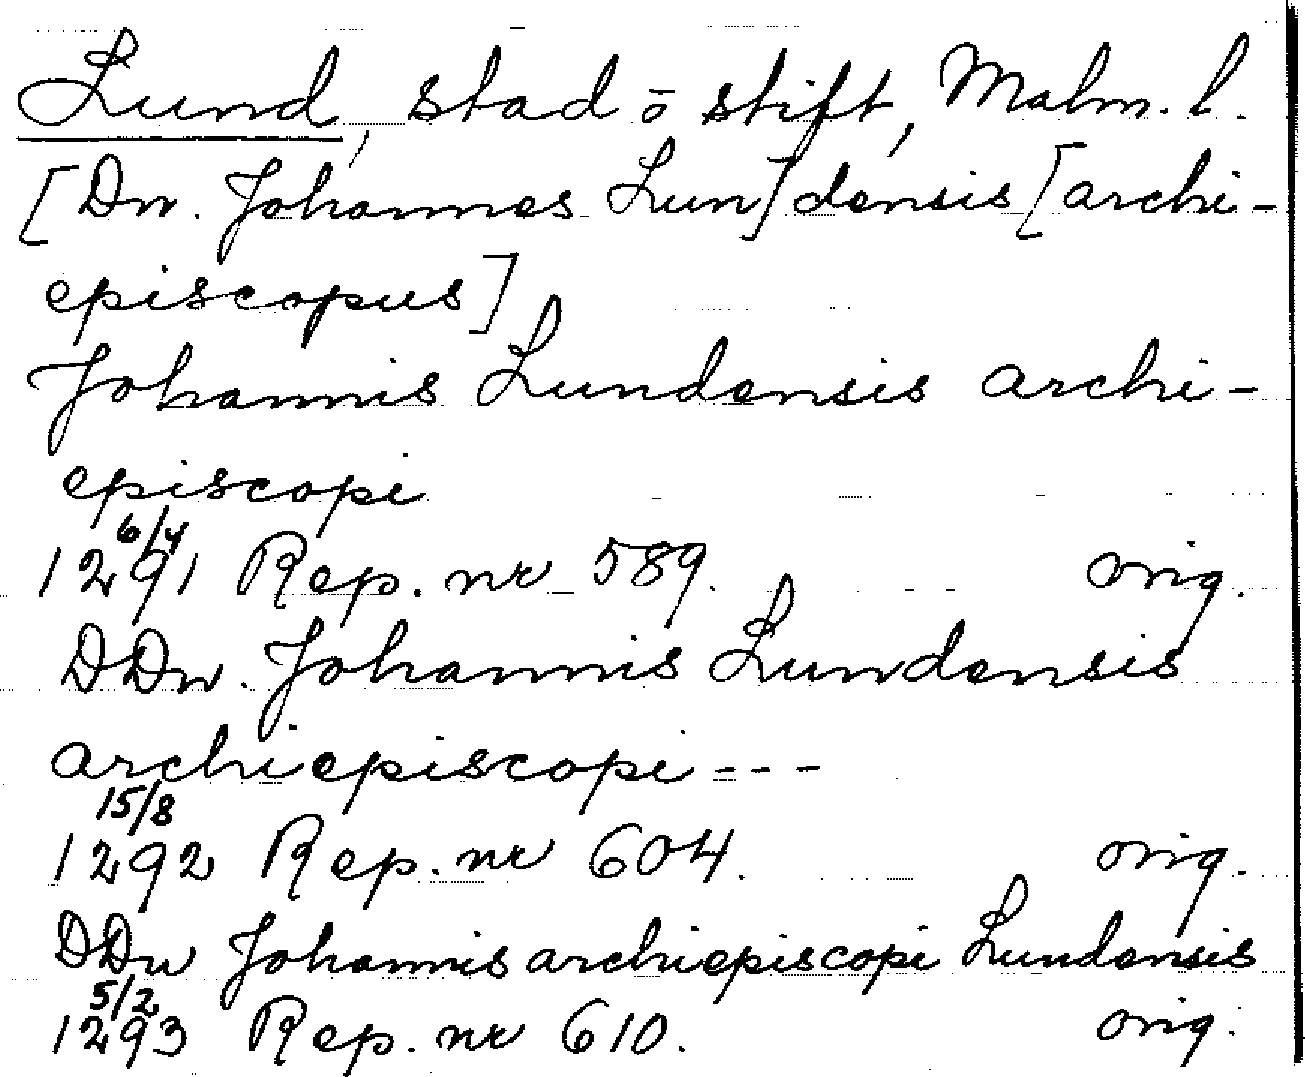 Lund, stad o stift, Malm. l.
[Dn. Johannes Lun]densis [archi-
episcopus]
Johannis Lundensis archi-
episcopi
6/4
1291 Rep. nr 589. orig.
DDn. Johannis Lundensis
archiepiscopi - - -
15/8
1292 Rep. nr 604. orig.
DDn Johannis archiepiscopi Lundensis
5/2
1293 Rep. nr 610. orig.